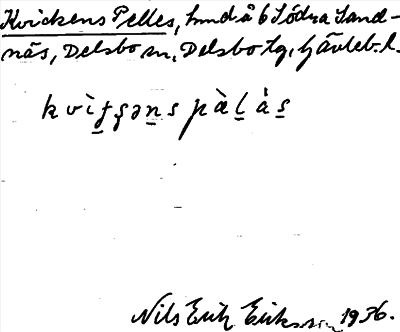 Kvickens Pelles, hmd å 6 Södra Sand-
näs, Delsbo sn, Delsbo tg, Gävleb. l.
kvìt̠ʂən̠s pàl̠ȧs̠
Nils Erik Eriksson 1936.